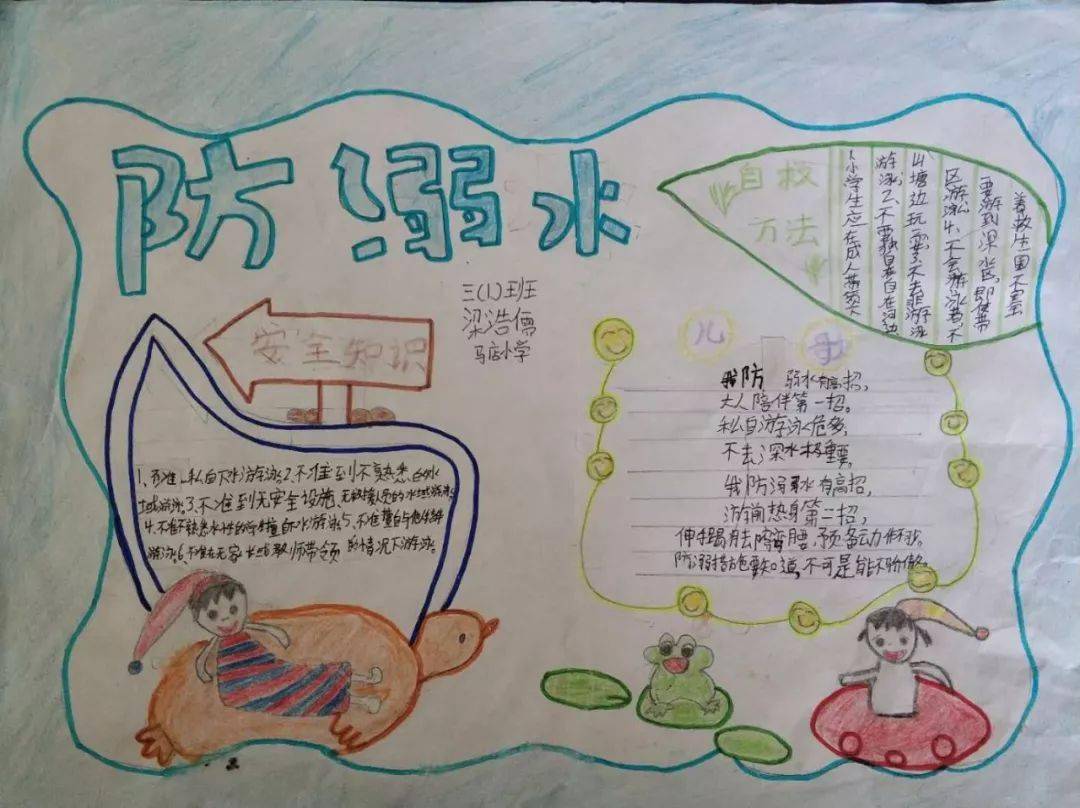 防溺水
三(1)班
梁浩儒
马店小学
自救
方法
1、小学生应在成人带领下
游泳2、不要独自在河边
山塘边玩耍3、不去非游泳
区游泳4、不会游泳者,不
要游到深水区,即使带
着救生圈不安全
安全知识
1、不准私自下水游泳2、不准到不熟悉的水
域游泳3、不准到无安全设施、无救援人员的水域游泳
4、不准不熟悉水性的学生擅自下水游泳5、不准擅自与他人结伴
游泳6、不准在无家长或教师带领的情况下游泳。
儿歌
我防溺水有高招,
大人陪伴第一招。
私自游泳危多,
不去深水极重要。
我防溺水有高招,
游前热身第二招,
伸手踢腿去弯腰,预备动作
防溺措施要知道,不可是能不盼做。